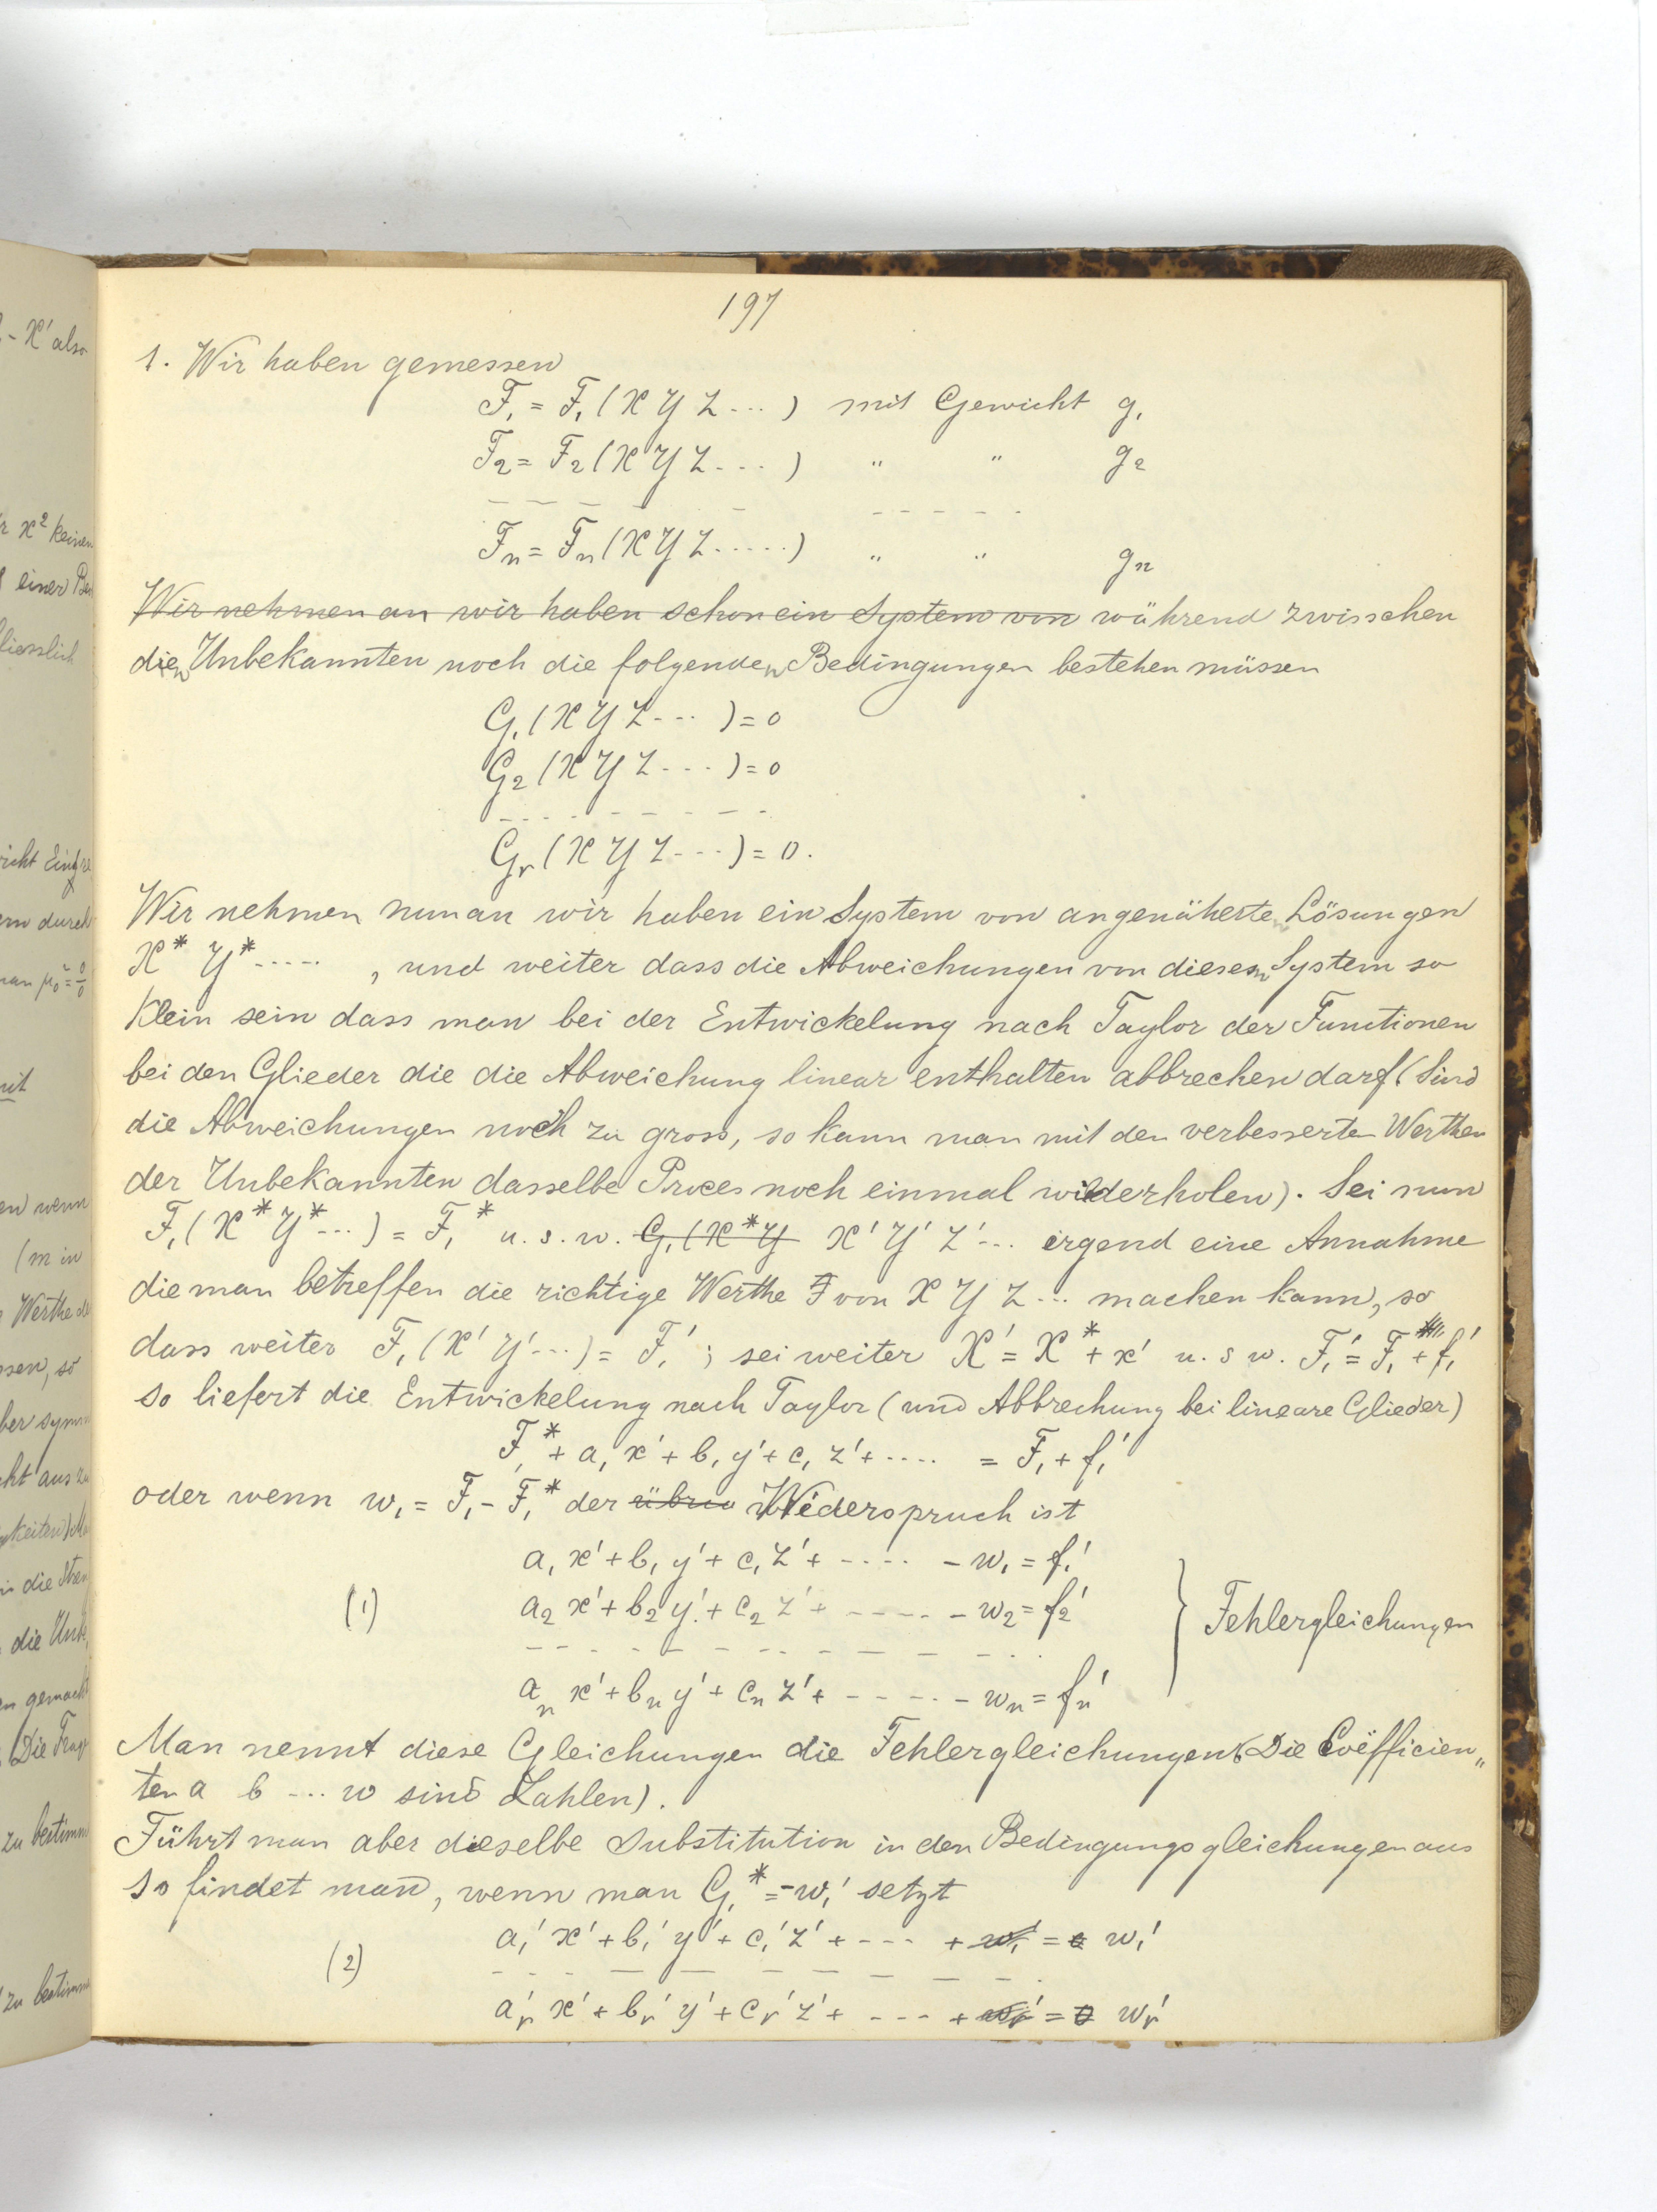 197
1. Wir haben gemessen
F₁ = F₁ (X Y Z ...) mit Gewicht g₁
F₂ = F₂ (X Y Z ...) " " g₂
Fₙ = Fₙ (X Y Z .....) " " gₙ
Wir nehmen an wir haben schon ein System von während zwisschen
dien Unbekannten noch die folgenden Bedingungen bestehen müssen
G₁ (X Y Z ...) = 0
G₂ (X Y Z ...) = 0
Gᵣ (X Y Z ...) = 0.
Wir nehmen nun an wir haben ein System von angenäherten Lösungen
X* Y* ..... , und weiter dass die Abweichungen von diesem System so
klein sein dass man bei der Entwickelung nach Taylor der Functionen
bei den Glieder die die Abweichung linear enthalten abbrechen darf (Sind
die Abweichungen noch zu gross, so kann man mit den verbesserten Werthen
der Unbekannten dasselbe Proces noch einmal widerholen). Sei nun
F₁ (X* Y* ...) = F₁* u. s. w. G₁ (X* Y X' Y' Z' ... irgend eine Annahme
die man betreffen die richtige Werthe F von X Y Z ... machen kann, so
dass weiter F₁ (X' Y' ...) = F₁' ; sei weiter X' = X* + x' u. s w. F₁' = F₁ + f₁'
so liefert die Entwickelung nach Taylor (und Abbrechung bei lineare Glieder)
F₁* + a₁ x' + b₁ y' + c₁ z' + .... = F₁ + f₁'
oder wenn w₁ = F₁ - F₁* der Widerspruch ist
a₁ x' + b₁ y' + c₁ z' + ..... - w₁ = f₁'
(1) a₂ x' + b₂ y' + c₂ z' + ..... - w₂ = f₂' } Fehlergleichungen
aₙ x' + bₙ y' + cₙ z' + ..... - wₙ = fₙ'
Man nennt diese Gleichungen die Fehlergleichungen (Die Coëfficien„
ten a b ... w sind Zahlen).
Führt man aber dieselbe Substitution in den Bedingungsgleichungen aus
so findet man, wenn man G₁* = -w₁' setzt
a₁' x' + b₁' y' + c₁' z' + ... + w₁' = 0 w₁'
(2)
aᵣ' x' + bᵣ' y' + cᵣ' z' + ... + wᵣ' = 0 wᵣ'